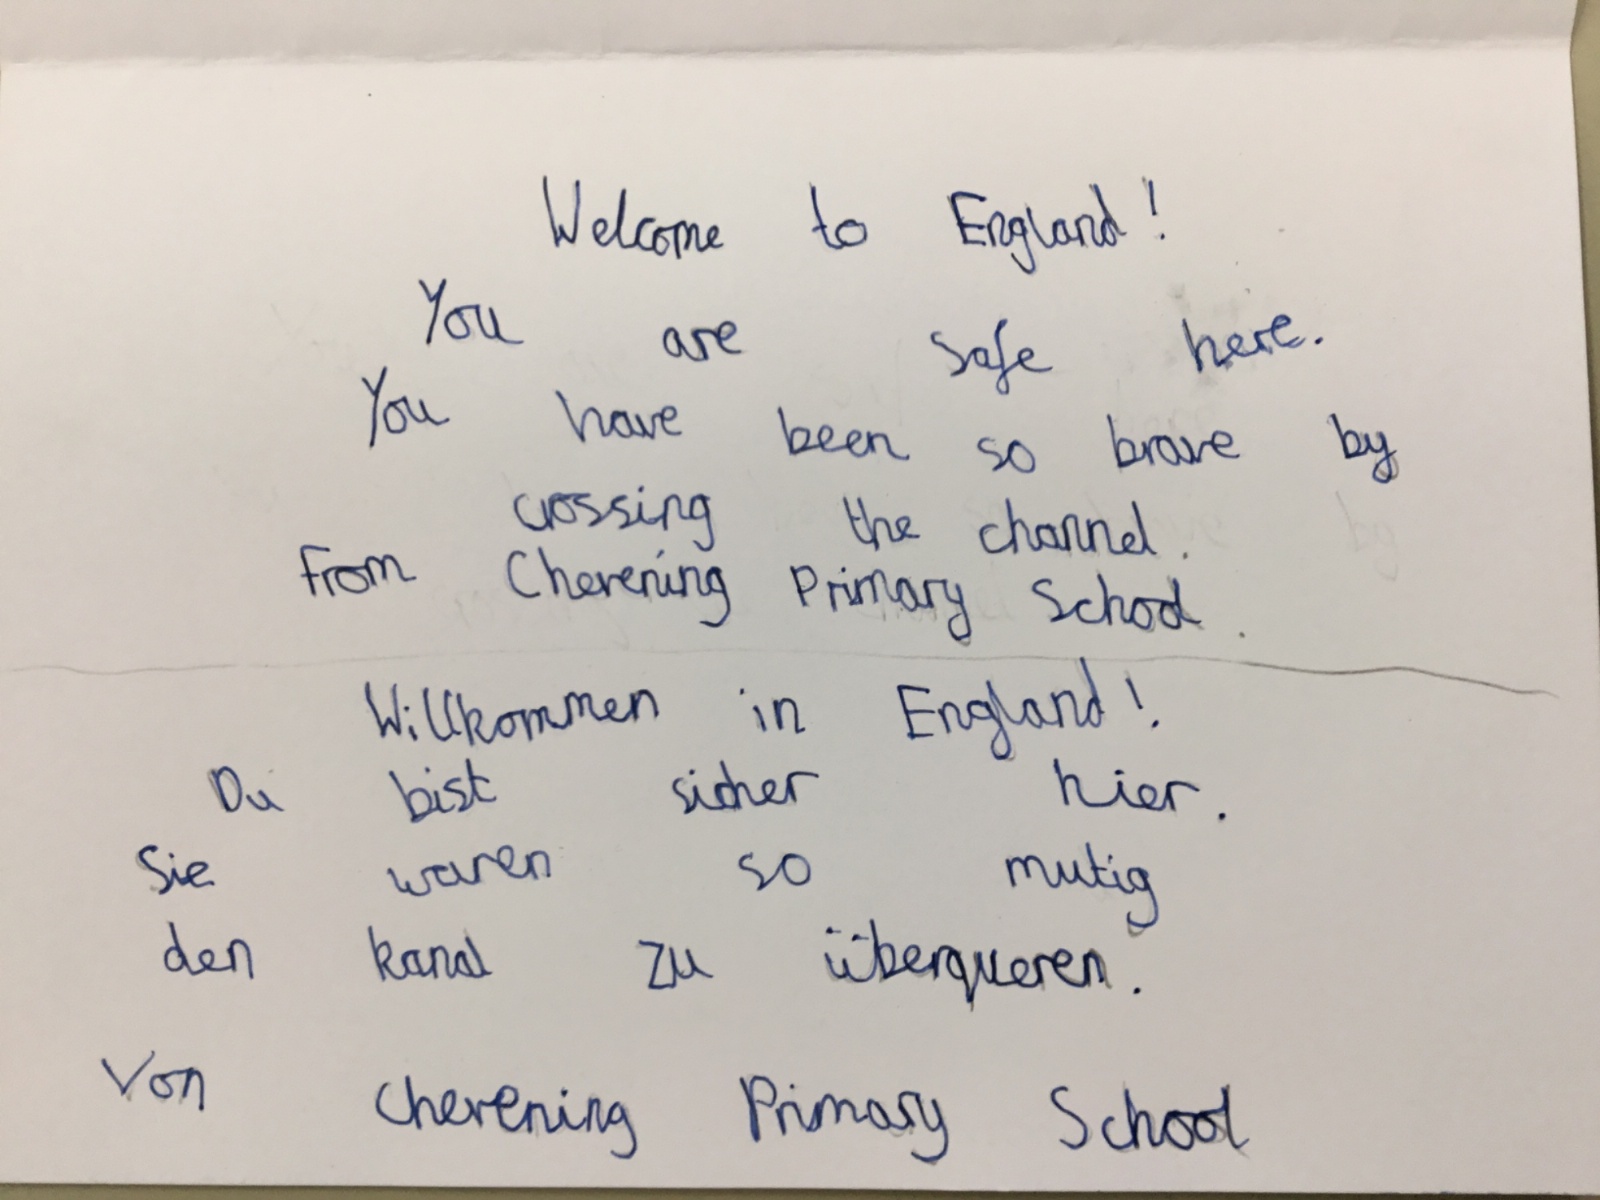 Welcome to England!
You are safe here.
You have been so brave by
crossing the channel.
From Cherening Primary School.
Willkommen in England!.
Du bist sicher hier.
Sie waren so mutig
den kanal zu überqueren.
Von Cherening Primary School